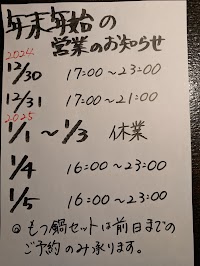 年末年始の
営業のお知らせ
2024
12/30 17:00～23:00
12/31 17:00～21:00
2025
1/1～1/3 休業
1/4 16:00～23:00
1/5 16:00～23:00
◎もつ鍋セットは前日までの
ご予約のみ承ります。